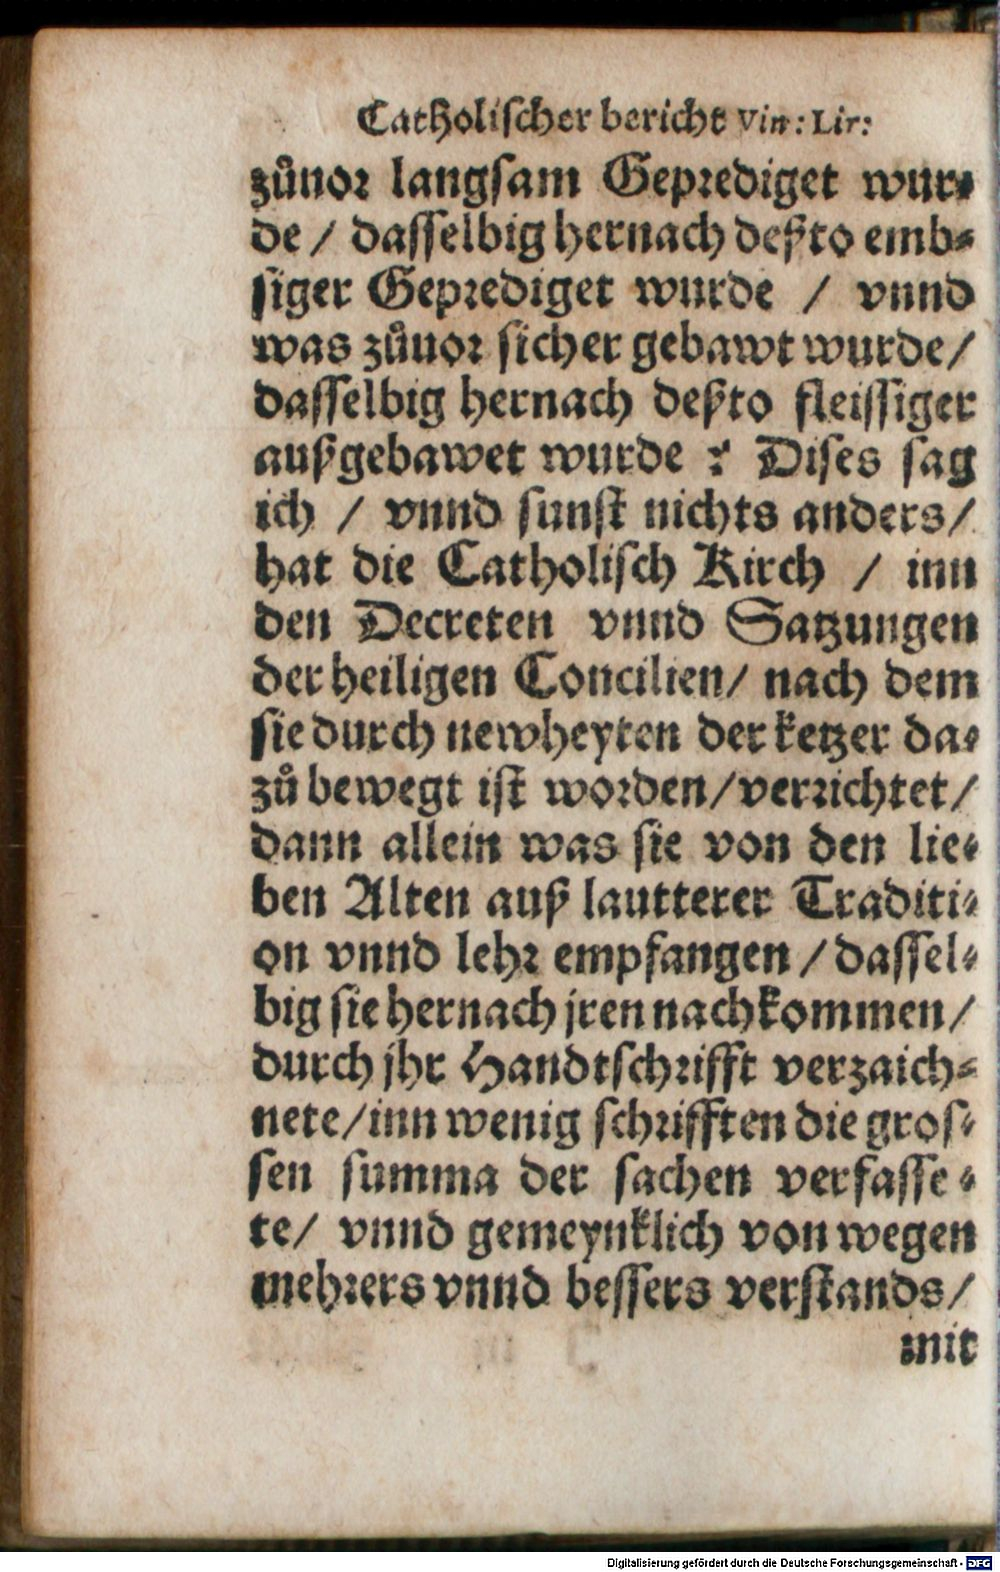 Catholischer bericht Vin: Lir:
zůuor langsam Geprediget wur⸗
de / dasselbig hernach deßto emb⸗
siger Geprediget wurde / vnnd
was zůuor sicher gebawt wurde/
dasselbig hernach deßto fleissiger
außgebawet wurde ? Dises sag
ich / vnnd sunst nichts anders/
hat die Catholisch Kirch / inn
den Decreten vnnd Satzungen
der heiligen Concilien/ nach dem
sie durch newheyten der ketzer da⸗
zů bewegt ist worden/verrichtet/
dann allein was sie von den lie⸗
ben Alten auß lautterer Traditi⸗
on vnnd lehr empfangen / dassel⸗
big sie hernach jren nachkommen/
durch jhr Handtschrifft verzaich⸗
nete/inn wenig schrifften die gros⸗
sen summa der sachen verfasse⸗
te/ vnnd gemeynklich von wegen
mehrers vnnd bessers verstands/
mit
Digitalisierung gefördert durch die Deutsche Forschungsgemeinschaft - DFG